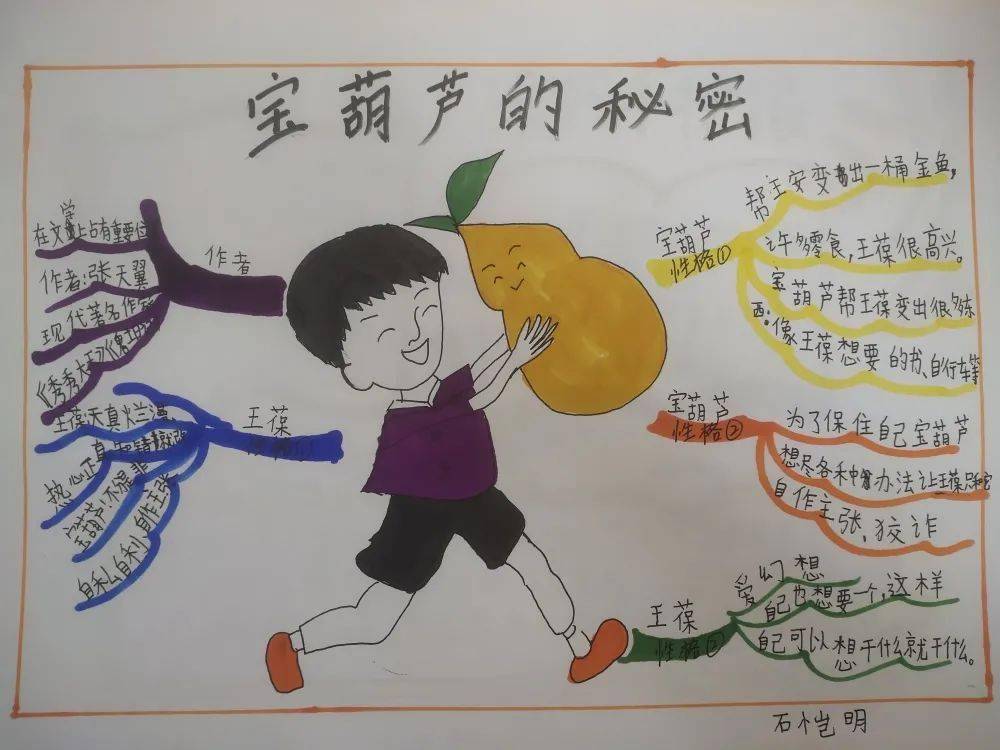 宝葫芦的秘密
作者
在文学史上占有重要位
作者:张天翼
现代著名作家
《秃秃大王》
王葆
性格①
王葆天真火烂漫
热心正直
宝葫芦不是
自私自利 自作主张
宝葫芦
性格①
帮王安变出一桶金鱼,
许多零食,王葆很高兴。
宝葫芦帮王葆变出很多东
西:像王葆想要的书、自行车等
宝葫芦
性格②
为了保住自己宝葫芦
想尽各种办法让王葆只和它
自作主张,狡诈
王葆
性格②
爱幻想
自己也想要一个,这样
自己可以想干什么就干什么。
石恺明